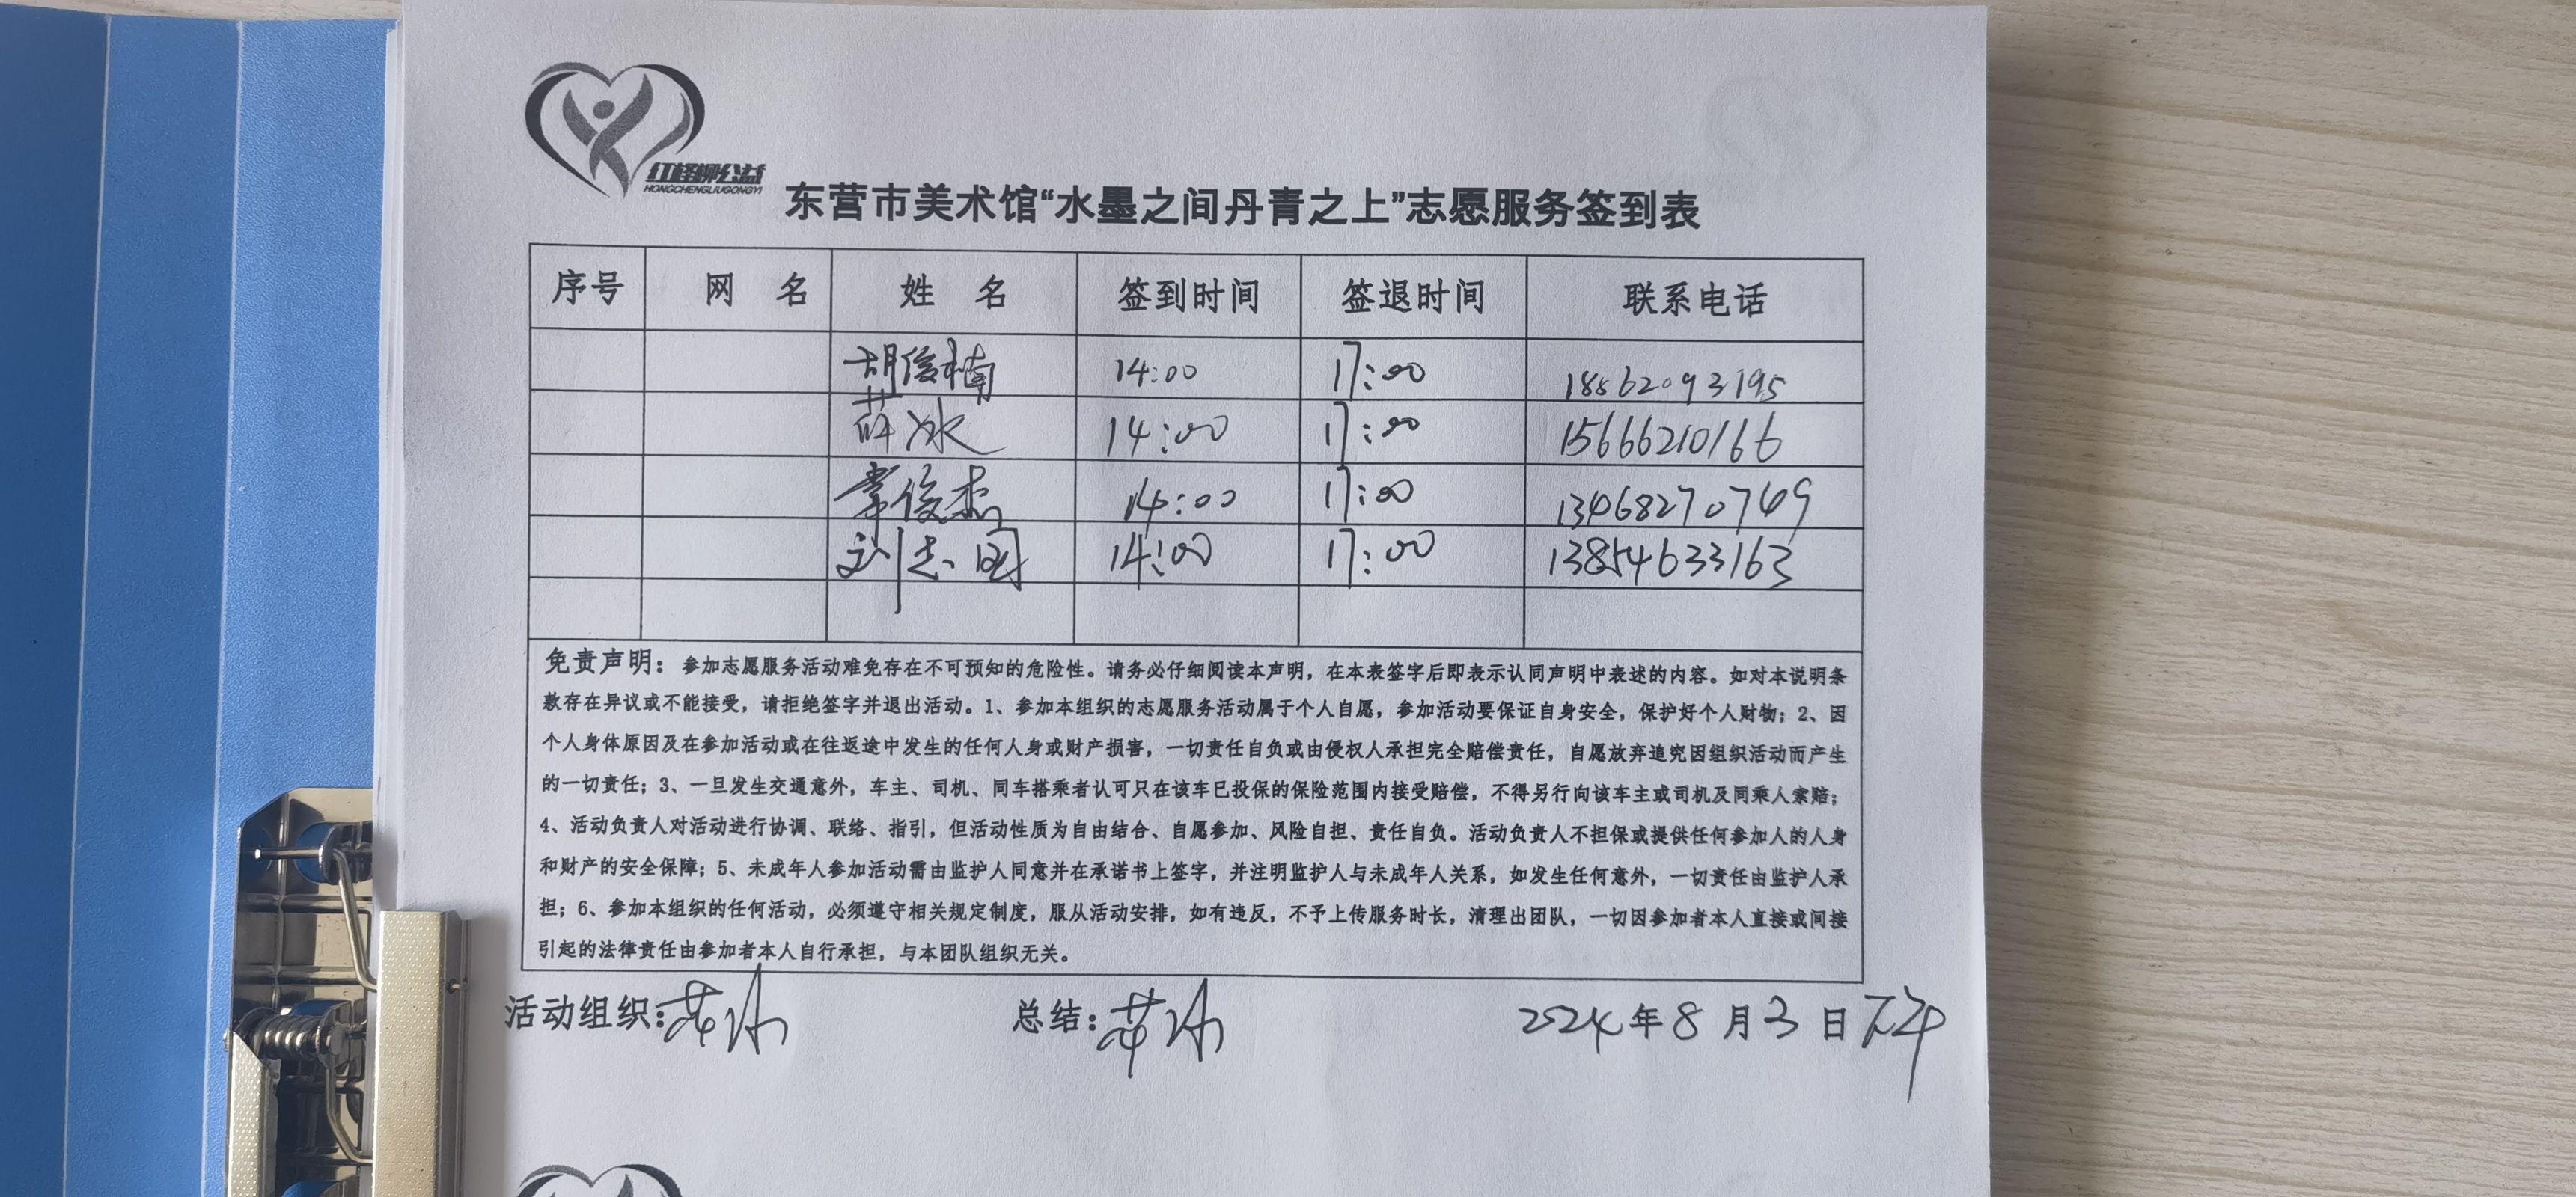 红柽柳公益
HONGCHENGLIUGONGYI
东营市美术馆“水墨之间丹青之上”志愿服务签到表
序号 网 名 姓 名 签到时间 签退时间 联系电话
胡俊楠 14:00 17:00 18562093195
薛冰 14:00 17:00 15666210166
常俊杰 14:00 17:00 13468270749
刘志国 14:00 17:00 13854633163
免责声明：参加志愿服务活动难免存在不可预知的危险性。请务必仔细阅读本声明，在本表签字后即表示认同声明中表述的内容。如对本说明条
款存在异议或不能接受，请拒绝签字并退出活动。1、参加本组织的志愿服务活动属于个人自愿，参加活动要保证自身安全，保护好个人财物；2、因
个人身体原因及在参加活动或在往返途中发生的任何人身或财产损害，一切责任自负或由侵权人承担完全赔偿责任，自愿放弃追究因组织活动而产生
的一切责任；3、一旦发生交通意外，车主、司机、同车搭乘者认可只在该车已投保的保险范围内接受赔偿，不得另行向该车主或司机及同乘人索赔；
4、活动负责人对活动进行协调、联络、指引，但活动性质为自由结合、自愿参加、风险自担、责任自负。活动负责人不担保或提供任何参加人的人身
和财产的安全保障；5、未成年人参加活动需由监护人同意并在承诺书上签字，并注明监护人与未成年人关系，如发生任何意外，一切责任由监护人承
担；6、参加本组织的任何活动，必须遵守相关规定制度，服从活动安排，如有违反，不予上传服务时长，清理出团队，一切因参加者本人直接或间接
引起的法律责任由参加者本人自行承担，与本团队组织无关。
活动组织：薛冰 总结：薛冰 2024年8月3日下午